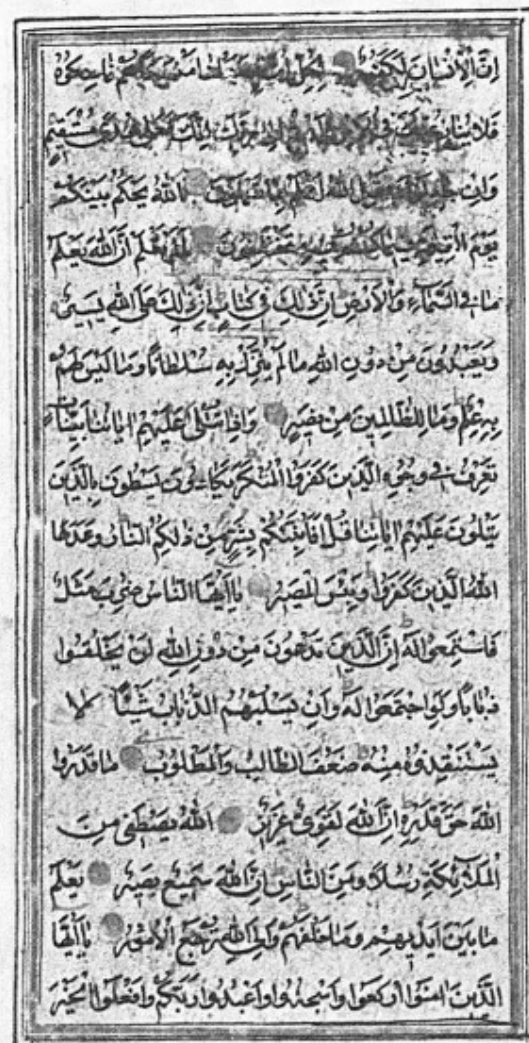 اِنَّ الْاِنْسَانَ لَكَفُورٌ لِكُلِّ اُمَّةٍ جَعَلْنَا مَنْسَكًا هُمْ نَاسِكُوهُ
فَلَا يُنَازِعُنَّكَ فِي الْاَمْرِ وَادْعُ اِلٰى رَبِّكَ اِنَّكَ لَعَلٰى هُدًى مُسْتَقِيمٍ
وَاِنْ جَادَلُوكَ فَقُلِ اللّٰهُ اَعْلَمُ بِمَا تَعْمَلُونَ اَللّٰهُ يَحْكُمُ بَيْنَكُمْ
يَوْمَ الْقِيٰمَةِ فِيمَا كُنْتُمْ فِيهِ تَخْتَلِفُونَ اَلَمْ تَعْلَمْ اَنَّ اللّٰهَ يَعْلَمُ
مَا فِي السَّمَاءِ وَالْاَرْضِ اِنَّ ذٰلِكَ فِي كِتَابٍ اِنَّ ذٰلِكَ عَلَى اللّٰهِ يَسِيرٌ
وَيَعْبُدُونَ مِنْ دُونِ اللّٰهِ مَا لَمْ يُنَزِّلْ بِهِ سُلْطَانًا وَمَا لَيْسَ لَهُمْ
بِهِ عِلْمٌ وَمَا لِلظَّالِمِينَ مِنْ نَصِيرٍ وَاِذَا تُتْلٰى عَلَيْهِمْ اٰيَاتُنَا بَيِّنَاتٍ
تَعْرِفُ فِي وُجُوهِ الَّذِينَ كَفَرُوا الْمُنْكَرَ يَكَادُونَ يَسْطُونَ بِالَّذِينَ
يَتْلُونَ عَلَيْهِمْ اٰيَاتِنَا قُلْ اَفَاُنَبِّئُكُمْ بِشَرٍّ مِنْ ذٰلِكُمُ النَّارُ وَعَدَهَا
اللّٰهُ الَّذِينَ كَفَرُوا وَبِئْسَ الْمَصِيرُ يَا اَيُّهَا النَّاسُ ضُرِبَ مَثَلٌ
فَاسْتَمِعُوا لَهُ اِنَّ الَّذِينَ تَدْعُونَ مِنْ دُونِ اللّٰهِ لَنْ يَخْلُقُوا
ذُبَابًا وَلَوِ اجْتَمَعُوا لَهُ وَاِنْ يَسْلُبْهُمُ الذُّبَابُ شَيْئًا لَا
يَسْتَنْقِذُوهُ مِنْهُ ضَعُفَ الطَّالِبُ وَالْمَطْلُوبُ مَا قَدَرُوا
اللّٰهَ حَقَّ قَدْرِهِ اِنَّ اللّٰهَ لَقَوِيٌّ عَزِيزٌ اَللّٰهُ يَصْطَفِي مِنَ
الْمَلٰئِكَةِ رُسُلًا وَمِنَ النَّاسِ اِنَّ اللّٰهَ سَمِيعٌ بَصِيرٌ يَعْلَمُ
مَا بَيْنَ اَيْدِيهِمْ وَمَا خَلْفَهُمْ وَاِلَى اللّٰهِ تُرْجَعُ الْاُمُورُ يَا اَيُّهَا
الَّذِينَ اٰمَنُوا ارْكَعُوا وَاسْجُدُوا وَاعْبُدُوا رَبَّكُمْ وَافْعَلُوا الْخَيْرَ